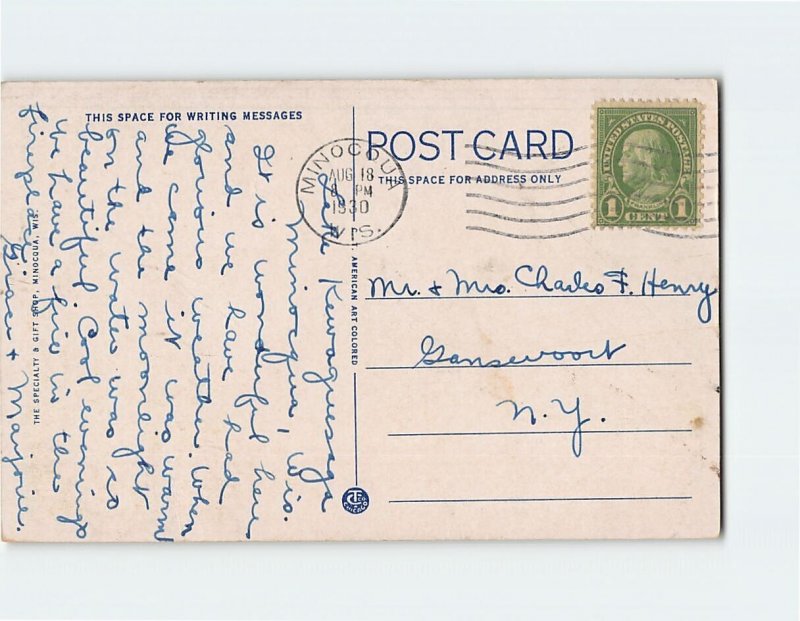 THIS SPACE FOR WRITING MESSAGES
Lake Kawaguesaga
Minocqua, Wis.
It is wonderful here
and we have had
glorious weather. When
we came it was warm
and the moonlight
on the water was so
beautiful. Cool evenings
we have a fire in the
fireplace.
Grace + Marjorie.
THE SPECIALTY & GIFT SHOP, MINOCQUA, WIS.
AMERICAN ART COLORED
CHICAGO
POST CARD
THIS SPACE FOR ADDRESS ONLY
MINOCQU
AUG 18
8 PM
1930
WIS.
UNITED STATES POSTAGE
FRANKLIN
1 CENT 1
Mr. & Mrs. Charles F. Henry
Gansevoort
N.Y.